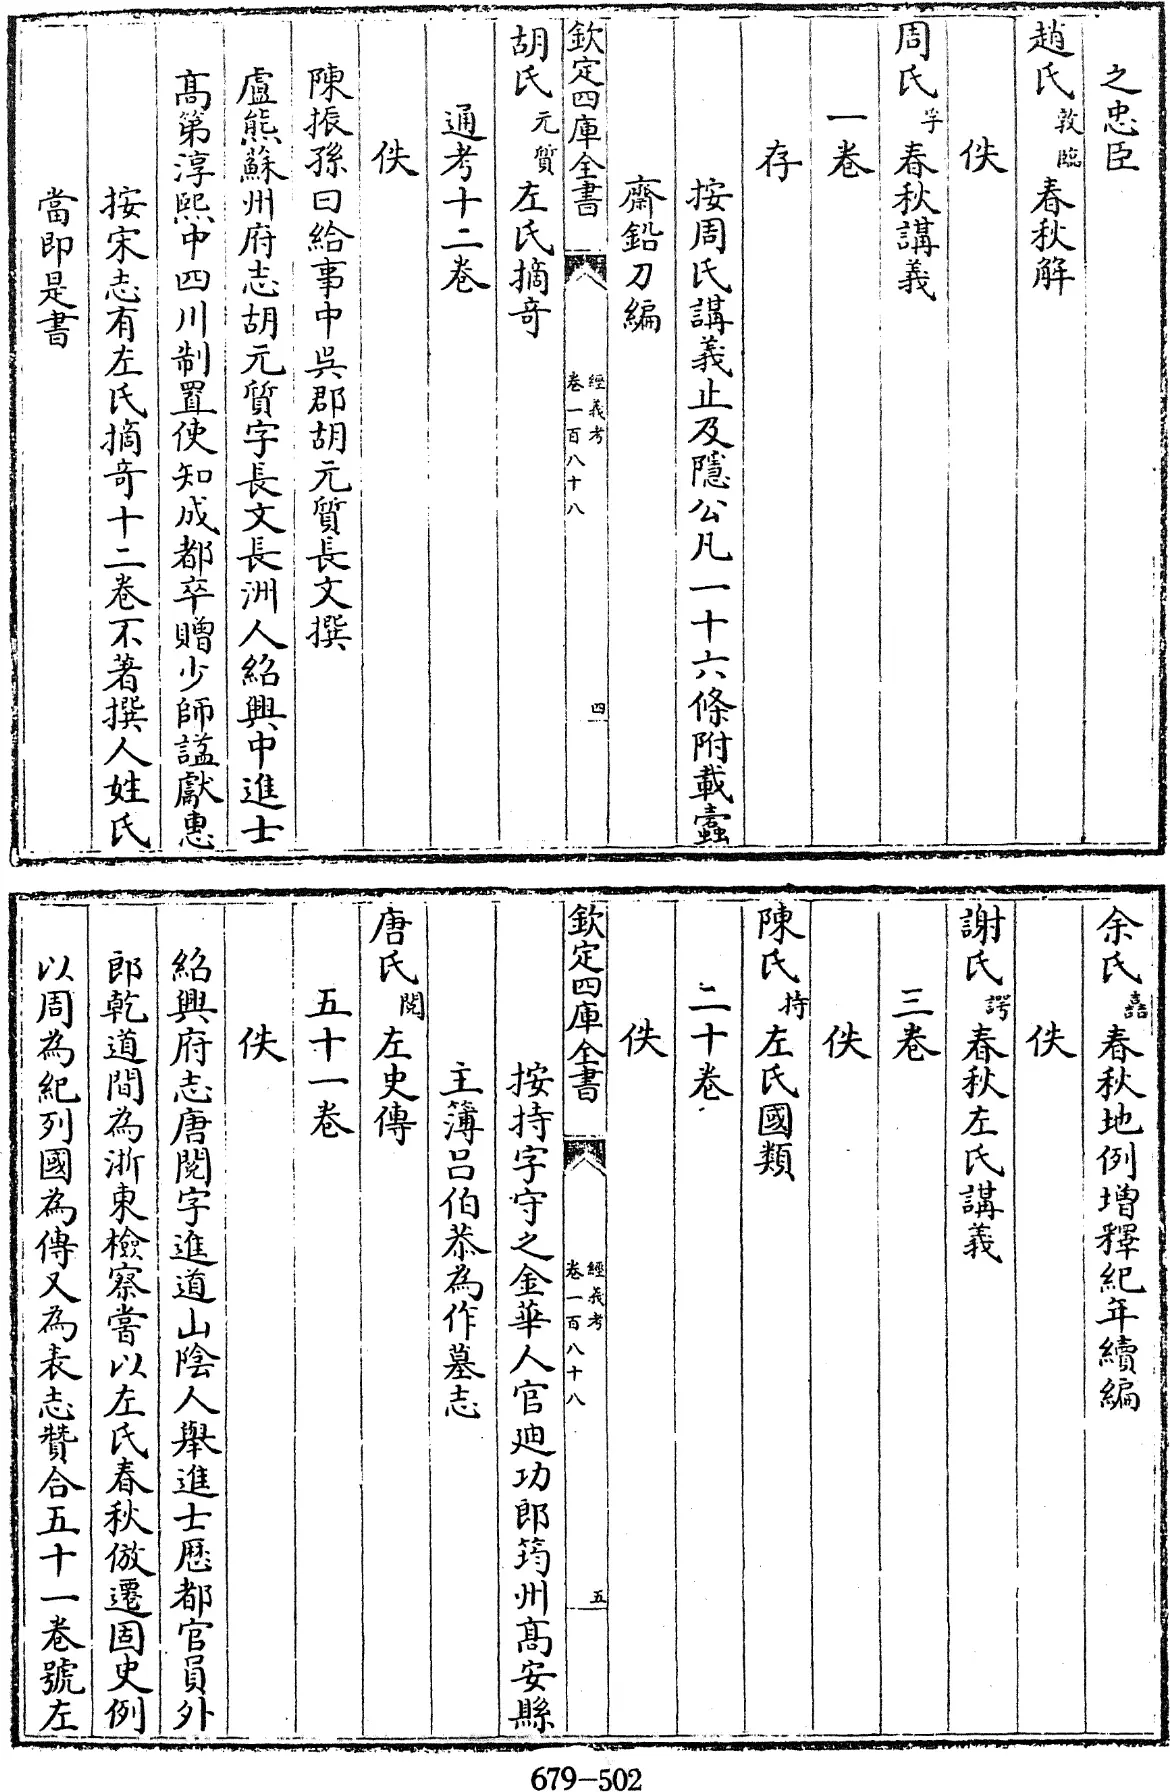 之忠臣
趙氏敦臨春秋解
佚
周氏孚春秋講義
一卷
存
按周氏講義止及隱公凡一十六條附載蠹
齋鉛刀編
欽定四庫全書
經義考
卷一百八十八
四
胡氏元質左氏摘奇
通考十二卷
佚
陳振孫曰給事中吳郡胡元質長文撰
盧熊蘇州府志胡元質字長文長洲人紹興中進士
髙第淳熙中四川制置使知成都卒贈少師諡獻惠
按宋志有左氏摘奇十二卷不著撰人姓氏
當即是書
余氏嚞春秋地例增釋紀年續編
佚
謝氏諤春秋左氏講義
三卷
佚
陳氏持左氏國類
二十卷
佚
欽定四庫全書
經義考
卷一百八十八
五
按持字守之金華人官迪功郎筠州髙安縣
主簿呂伯恭為作墓志
唐氏閱左史傳
五十一卷
佚
紹興府志唐閱字進道山陰人舉進士歷都官員外
郎乾道間為浙東檢察嘗以左氏春秋倣遷固史例
以周為紀列國為傳又為表志贊合五十一卷號左
679-502